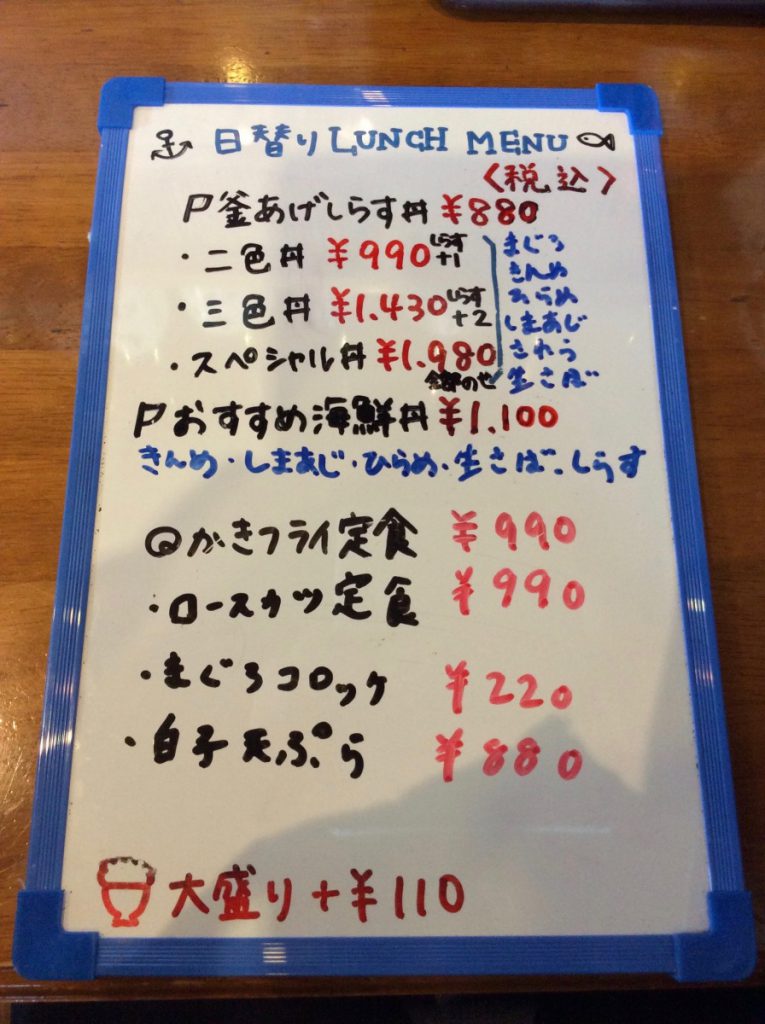 日替りLUNCH MENU
〈税込〉
釜あげしらす丼 ¥880
・二色丼 ¥990 しらす+1
・三色丼 ¥1.430 しらす+2
・スペシャル丼 ¥1.980 全部のせ
まぐろ
きんめ
ひらめ
しまあじ
さわら
生さば
おすすめ海鮮丼 ¥1.100
きんめ・しまあじ・ひらめ・生さば・しらす
かきフライ定食 ¥990
・ロースカツ定食 ¥990
・まぐろコロッケ ¥220
・白子天ぷら ¥880
大盛り+¥110